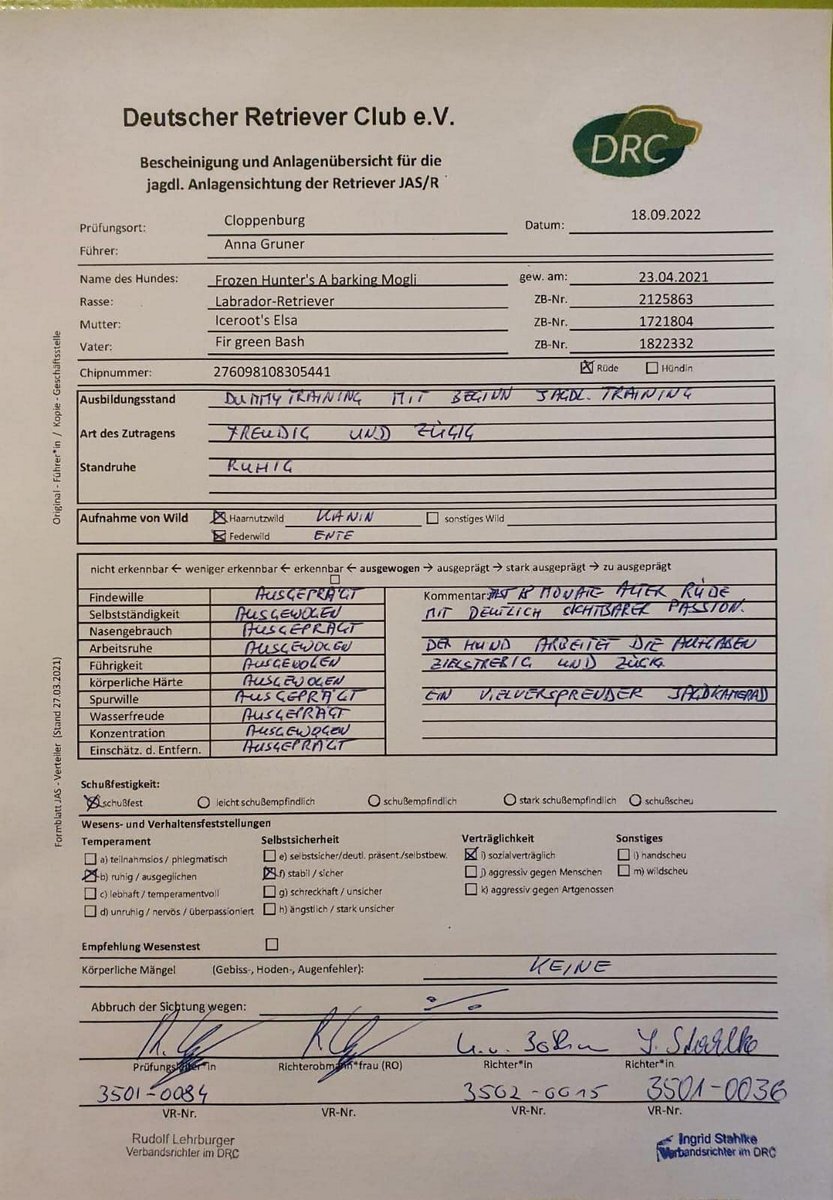 Deutscher Retriever Club e.V.
DRC
Bescheinigung und Anlagenübersicht für die
jagdl. Anlagensichtung der Retriever JAS/R
Prüfungsort: Cloppenburg Datum: 18.09.2022
Führer: Anna Gruner
Name des Hundes: Frozen Hunter's A barking Mogli gew. am: 23.04.2021
Rasse: Labrador-Retriever ZB-Nr. 2125863
Mutter: Iceroot's Elsa ZB-Nr. 1721804
Vater: Fir green Bash ZB-Nr. 1822332
Chipnummer: 276098108305441 Rüde Hündin
Ausbildungsstand DUMMYTRAINING MIT BEGINN JAGDL. TRAINING
Art des Zutragens FREUDIG UND ZÜGIG
Standruhe RUHIG
Aufnahme von Wild Haarnutzwild KANIN sonstiges Wild
Federwild ENTE
nicht erkennbar ← weniger erkennbar ← erkennbar ← ausgewogen → ausgeprägt → stark ausgeprägt → zu ausgeprägt
Findewille AUSGEPRÄGT Kommentar: FAST 18 MONATE ALTER RÜDE
Selbstständigkeit AUSGEWOGEN MIT DEUTLICH SICHTBARER PASSION.
Nasengebrauch AUSGEPRÄGT
Arbeitsruhe AUSGEWOGEN DER HUND ARBEITET DIE AUFGABEN
Führigkeit AUSGEWOGEN ZIELSTREBIG UND ZÜGIG
körperliche Härte AUSGEWOGEN
Spurwille AUSGEPRÄGT EIN VIELVERSPRENDER JAGDKAMERAD
Wasserfreude AUSGEPRÄGT
Konzentration AUSGEWOGEN
Einschätz. d. Entfern. AUSGEPRÄGT
Schußfestigkeit:
schußfest leicht schußempfindlich schußempfindlich stark schußempfindlich schußscheu
Wesens- und Verhaltensfeststellungen
Temperament Selbstsicherheit Verträglichkeit Sonstiges
a) teilnahmslos / phlegmatisch e) selbstsicher/deutl. präsent./selbstbew. i) sozialverträglich l) handscheu
b) ruhig / ausgeglichen f) stabil / sicher j) aggressiv gegen Menschen m) wildscheu
c) lebhaft / temperamentvoll g) schreckhaft / unsicher k) aggressiv gegen Artgenossen
d) unruhig / nervös / überpassioniert h) ängstlich / stark unsicher
Empfehlung Wesenstest
Körperliche Mängel (Gebiss-, Hoden-, Augenfehler): KEINE
Abbruch der Sichtung wegen:
I. Stahlke
Prüfungsleiter*in Richterobmann*frau (RO) Richter*in Richter*in
3501-0084 3502-0015 3501-0036
VR-Nr. VR-Nr. VR-Nr. VR-Nr.
Rudolf Lehrburger Ingrid Stahlke
Verbandsrichter im DRC Verbandsrichter im DRC
Original - Führer*in / Kopie - Geschäftsstelle
Formblatt JAS - Verteiler (Stand 27.03.2021)